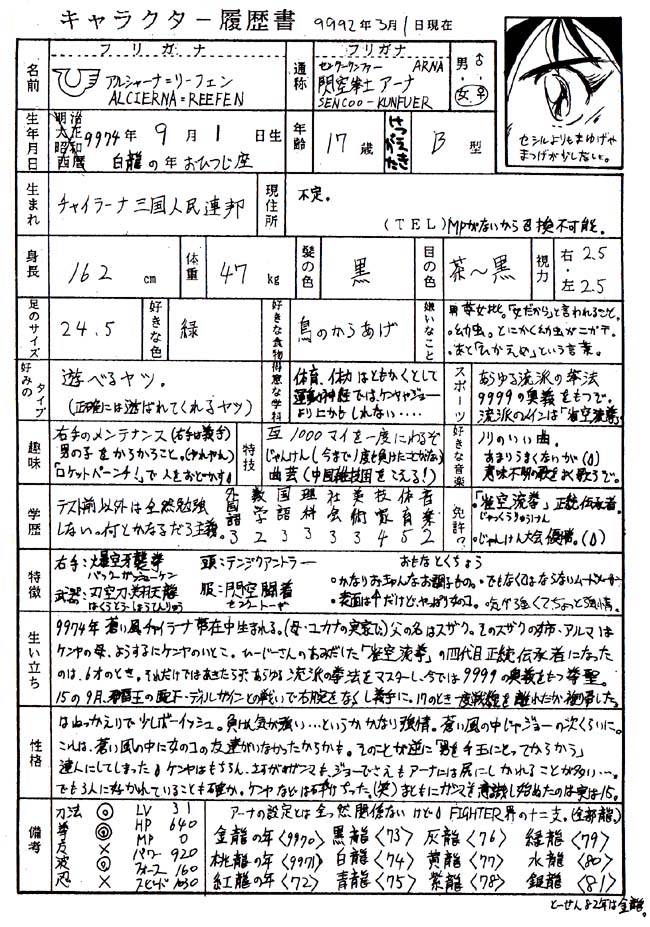 キャラクター履歴書 9992年3月1日現在
フリガナ
名前
アルシャーナ=リーフェン
ALCIERNA=REEFEN
フリガナ
通称
センクークンファー ARNA
閃空拳士アーナ
SENCOO-KUNFUER
男・女
♂・♀
セシルよりもまゆげや
まつげが少しないし。
生年月日
明治
大正
昭和
西暦
9974年 9月 1日生
白龍の年おひつじ座
年齢
17歳
けつえきがた
B型
生まれ
チャイラーナ三国人民連邦
現住所
不定。
(TEL)MPがないから召換不可能。
身長
162cm
体重
47kg
髪の色
黒
目の色
茶〜黒
視力
右 2.5
・
左 2.5
足のサイズ
24.5
好きな色
緑
好きな食物
鳥のからあげ
嫌いなこと
男女比べ。「女だから」と言われること。
・幼虫。とにかく幼虫がニガテ。
・あと「ひかえめ」という言葉。
好みのタイプ
遊べるヤツ。
(正確には遊ばれてくれるヤツ)
得意な学科
体育、体力はともかくとして
運動神経ではケンヤやジョー
より上かもしれない‥‥
スポーツ
あらゆる流派の拳法
9999の奥義をもつ。
流派のメインは「雀空演拳」
趣味
右手のメンテナンス(右手は義手)
男の子をからかうこと。
「ロケットパーンチ!」で人をおどかす
特技
瓦1000マイを一度にわるぞ
じゃんけん(今まで1度も負けたことがない)
曲芸(中国雑技団をこえる!)
好きな音楽
ノリのいい曲。
あまりうまくないが
意味不明の歌をよく歌うぞ。
学歴
テスト前以外は全然勉強
しない。何とかなるだろ主義。
外国語 3
数学 2
国語 3
理科 3
社会 3
美術 3
技家 4
体育 5
音楽 2
免許
「雀空演拳」正統伝承者。
じゃんけん大会優勝。
特徴
右手:爆空牙襲拳
頭:テンジクアントラー
バックーガシューケン
武器:刃空刀・翔王龍
はくうとう・しょうおうりゅう
服:閃空闘着
センクートーギ
おもなとくちょう
・かなりおちゃんなお調子もの。
・でもなくてはならないムードメーカー
・表面は↑だけど、やっぱり女のコ。
・気が強くてちょっと強情。
生い立ち
9974年蒼い風チャイラーナ帯在中生まれる。(母・ユカナの実家で)父の名はスザク。そのスザクの姉・アルマは
ケンヤの母、ようするにケンヤのいとこ。ひーじーさんのあみだした「雀空演拳」の四代目正統伝承者になった
のは、6才のとき。それだけではあきたらず、あらゆる流派の拳法をマスターし、今では9999の奥義をもつ拳聖。
15の9月、覇王の配下・ディルガインとの戦いで右腕をなくし義手に。17のとき一度戦線を離れたが復帰した。
性格
はねっかえりで少しボーイッシュ。負けん気が強い…というかかなり強情。蒼い風の中じゃジョーの次くらいに。
これは、蒼い風の中に女のコの友達がいなかったからかも。そのことが逆に「男を手玉にとってからかう」
達人にしてしまった。ケンヤはもちろん、さすがのガンマも、ジョーでさえもアーナには尻にしかれることが多い…。
でも3人に好かれていることも確か。ケンヤなどは(笑)おもにガンマを意識し始めたのは実は15。
備考
刀法 ◎
拳 ◎
友 ×
波 ◎
忍 ×
LV 31
HP 640
MP 0
パワー 920
フォース 160
スピード 1030
アーナの設定とは全っ然関係ないけど FIGHTER界の十二支。(全部龍)
金龍の年〈9970〉 黒龍〈73〉 灰龍〈76〉 緑龍〈79〉
桃龍の年〈9971〉 白龍〈74〉 黄龍〈77〉 水龍〈80〉
紅龍の年〈72〉 青龍〈75〉 紫龍〈78〉 銀龍〈81〉
とーぜん82年は金龍。